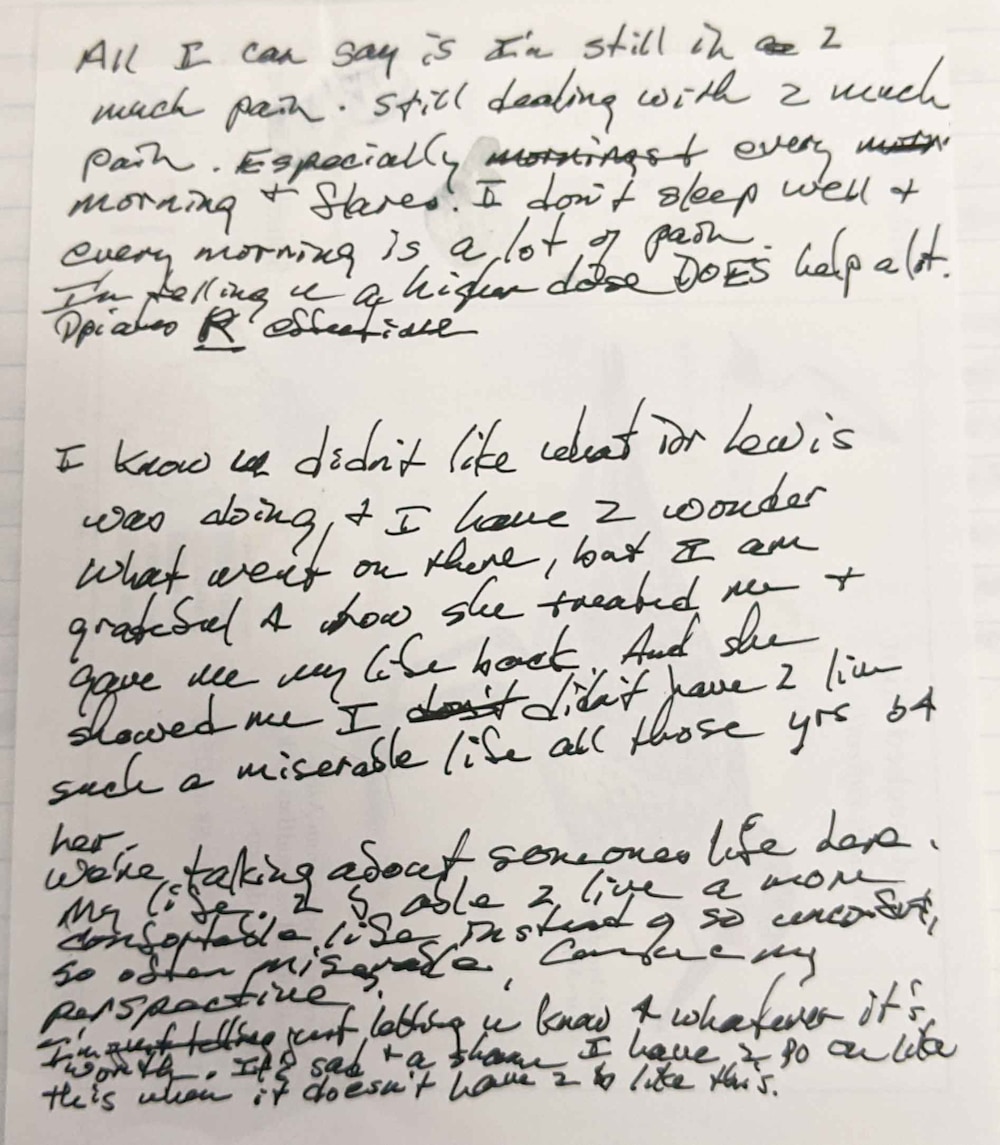 All I can say is I'm still in 2
much pain. Still dealing with 2 much
pain. Especially mornings + every morn
morning + flares. I don't sleep well +
every morning is a lot of pain.
I'm telling u a higher dose DOES help a lot.
Opiates R effective
I know u didn't like what Dr Lewis
was doing, + I have 2 wonder
what went on there, but I am
grateful 4 how she treated me +
gave me my life back. And she
showed me I don't didn't have 2 live
such a miserable life all those yrs b4
her.
We're talking about someones life here.
My life. 2 b able 2 live a more
comfortable life instead of so uncomfort,
so often miserable. my
perspective.
I'm just telling just letting u know 4 whatever it's
worth. It's sad + a shame I have 2 go on like
this when it doesn't have 2 b like this.